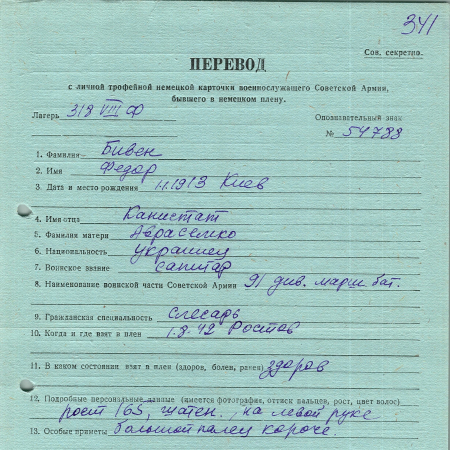 341
Сов. секретно.
ПЕРЕВОД
с личной трофейной немецкой карточки военнослужащего Советской Армии,
бывшего в немецком плену.
Лагерь 318 VIII Ф
Опознавательный знак
№ 54788
1. Фамилия Бивен
2. Имя Федор
3. Дата и место рождения 1.1.1913 Киев
4. Имя отца Канистат
5. Фамилия матери Аврасемко
6. Национальность украинец
7. Воинское звание санитар
8. Наименование воинской части Советской Армии 91 див. марш. бат.
9. Гражданская специальность слесарь
10. Когда и где взят в плен 1.8.42 Ростов
11. В каком состоянии взят в плен (здоров, болен, ранен) здоров
12. Подробные персональные данные (имеется фотография, оттиск пальцев, рост, цвет волос)
рост 165, шатен., на левой руке
13. Особые приметы большой палец короче.